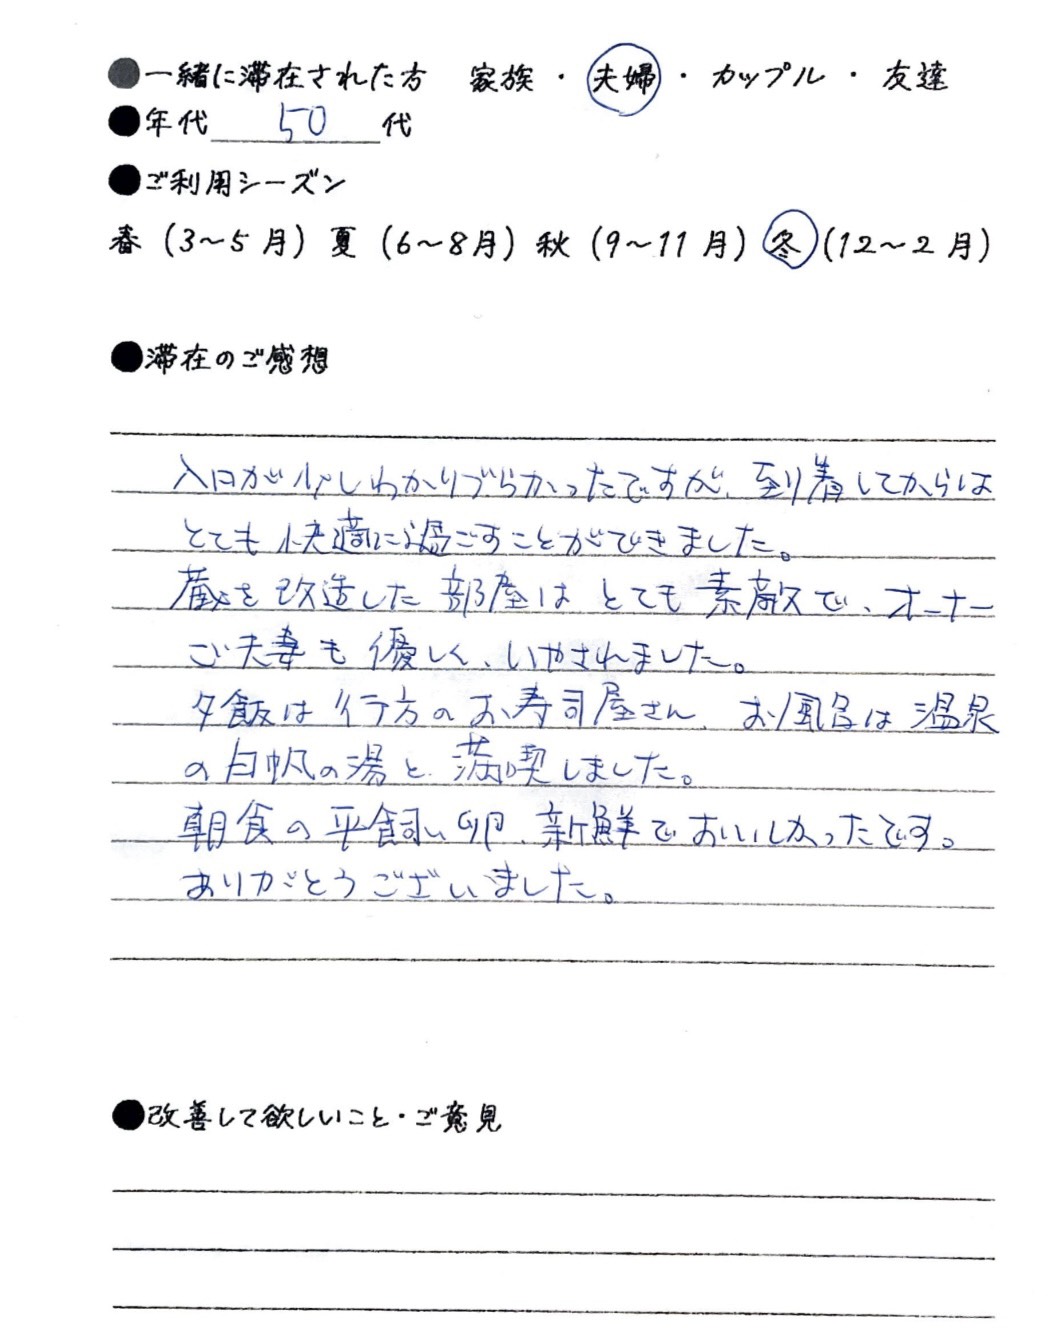 ●一緒に滞在された方　家族・夫婦・カップル・友達
●年代 50 代
●ご利用シーズン
春（3～5月）夏（6～8月）秋（9～11月）冬（12～2月）
●滞在のご感想
入口が少しわかりづらかったですが、到着してからは
とても快適に過ごすことができました。
蔵を改造した部屋はとても素敵で、オーナー
ご夫妻も優しく、いやされました。
夕飯は行方のお寿司屋さん、お風呂は温泉
の白帆の湯と、満喫しました。
朝食の平飼い卵、新鮮でおいしかったです。
ありがとうございました。
●改善して欲しいこと・ご意見